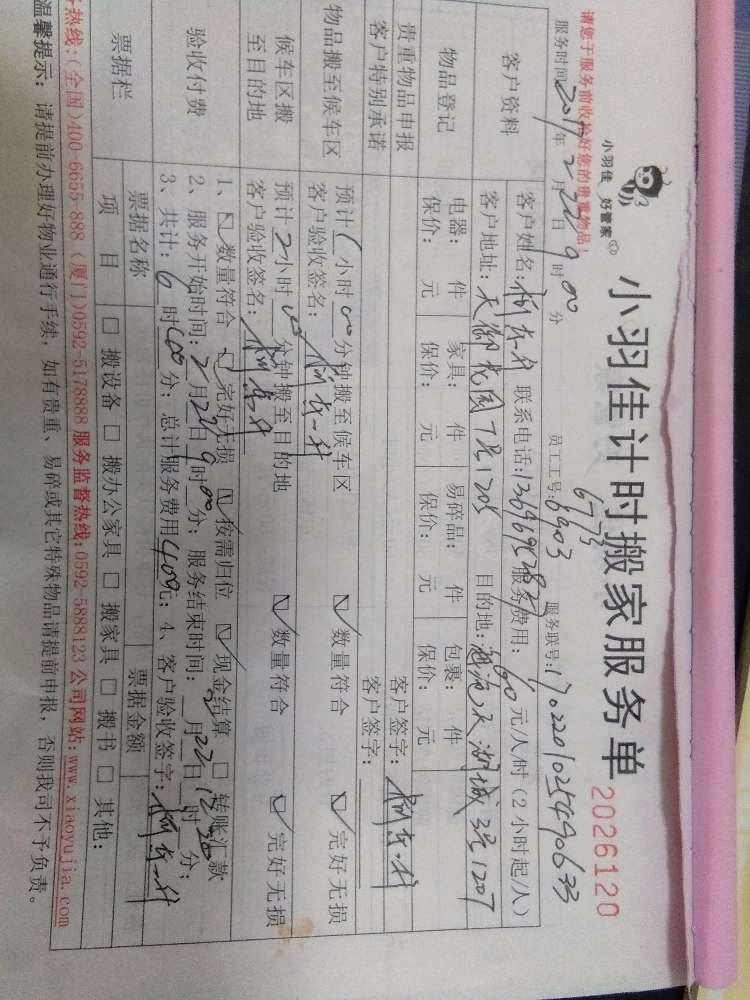 请您于服务前收拾好您的贵重物品!
小羽佳 好管家
小羽佳计时搬家服务单
2026120
6773
服务时间2017年2月22日9时00分 员工工号:6903 服务联号:
客户资料
客户姓名: 联系电话: 服务费用: 元/人/时(2小时起/人)
客户地址:天御花园7号1205 目的地: 湖城3号1207
物品登记
电器: 件 家具: 件 易碎品: 件 包裹: 件
保价: 元 保价: 元 保价: 元 保价: 元
贵重物品申报
客户签字:
客户特别承诺
客户签字:
物品搬至候车区
预计1小时00分钟搬至候车区 数量符合 完好无损
客户验收签名:
候车区搬至目的地
预计2小时00分钟搬至目的地 数量符合 完好无损
客户验收签名:
验收付费
1、数量符合 完好无损 按需归位 现金结算 转账汇款
2、服务开始时间:2月22日9时00分; 服务结束时间: 月22日12时 分;
3、共计:6时00分;总计服务费用400元;4、客户验收签字:
票据栏
票据名称 票据金额
项目 搬设备 搬办公家具 搬家具 搬书 其他:
热线:(全国)400-6655-888 (厦门)0592-5178888 服务监督热线:0592-5888123 公司网站:www.xiaoyujia.com
温馨提示: 请提前办理好物业通行手续,如有贵重、易碎或其它特殊物品请提前申报,否则我司不予负责。